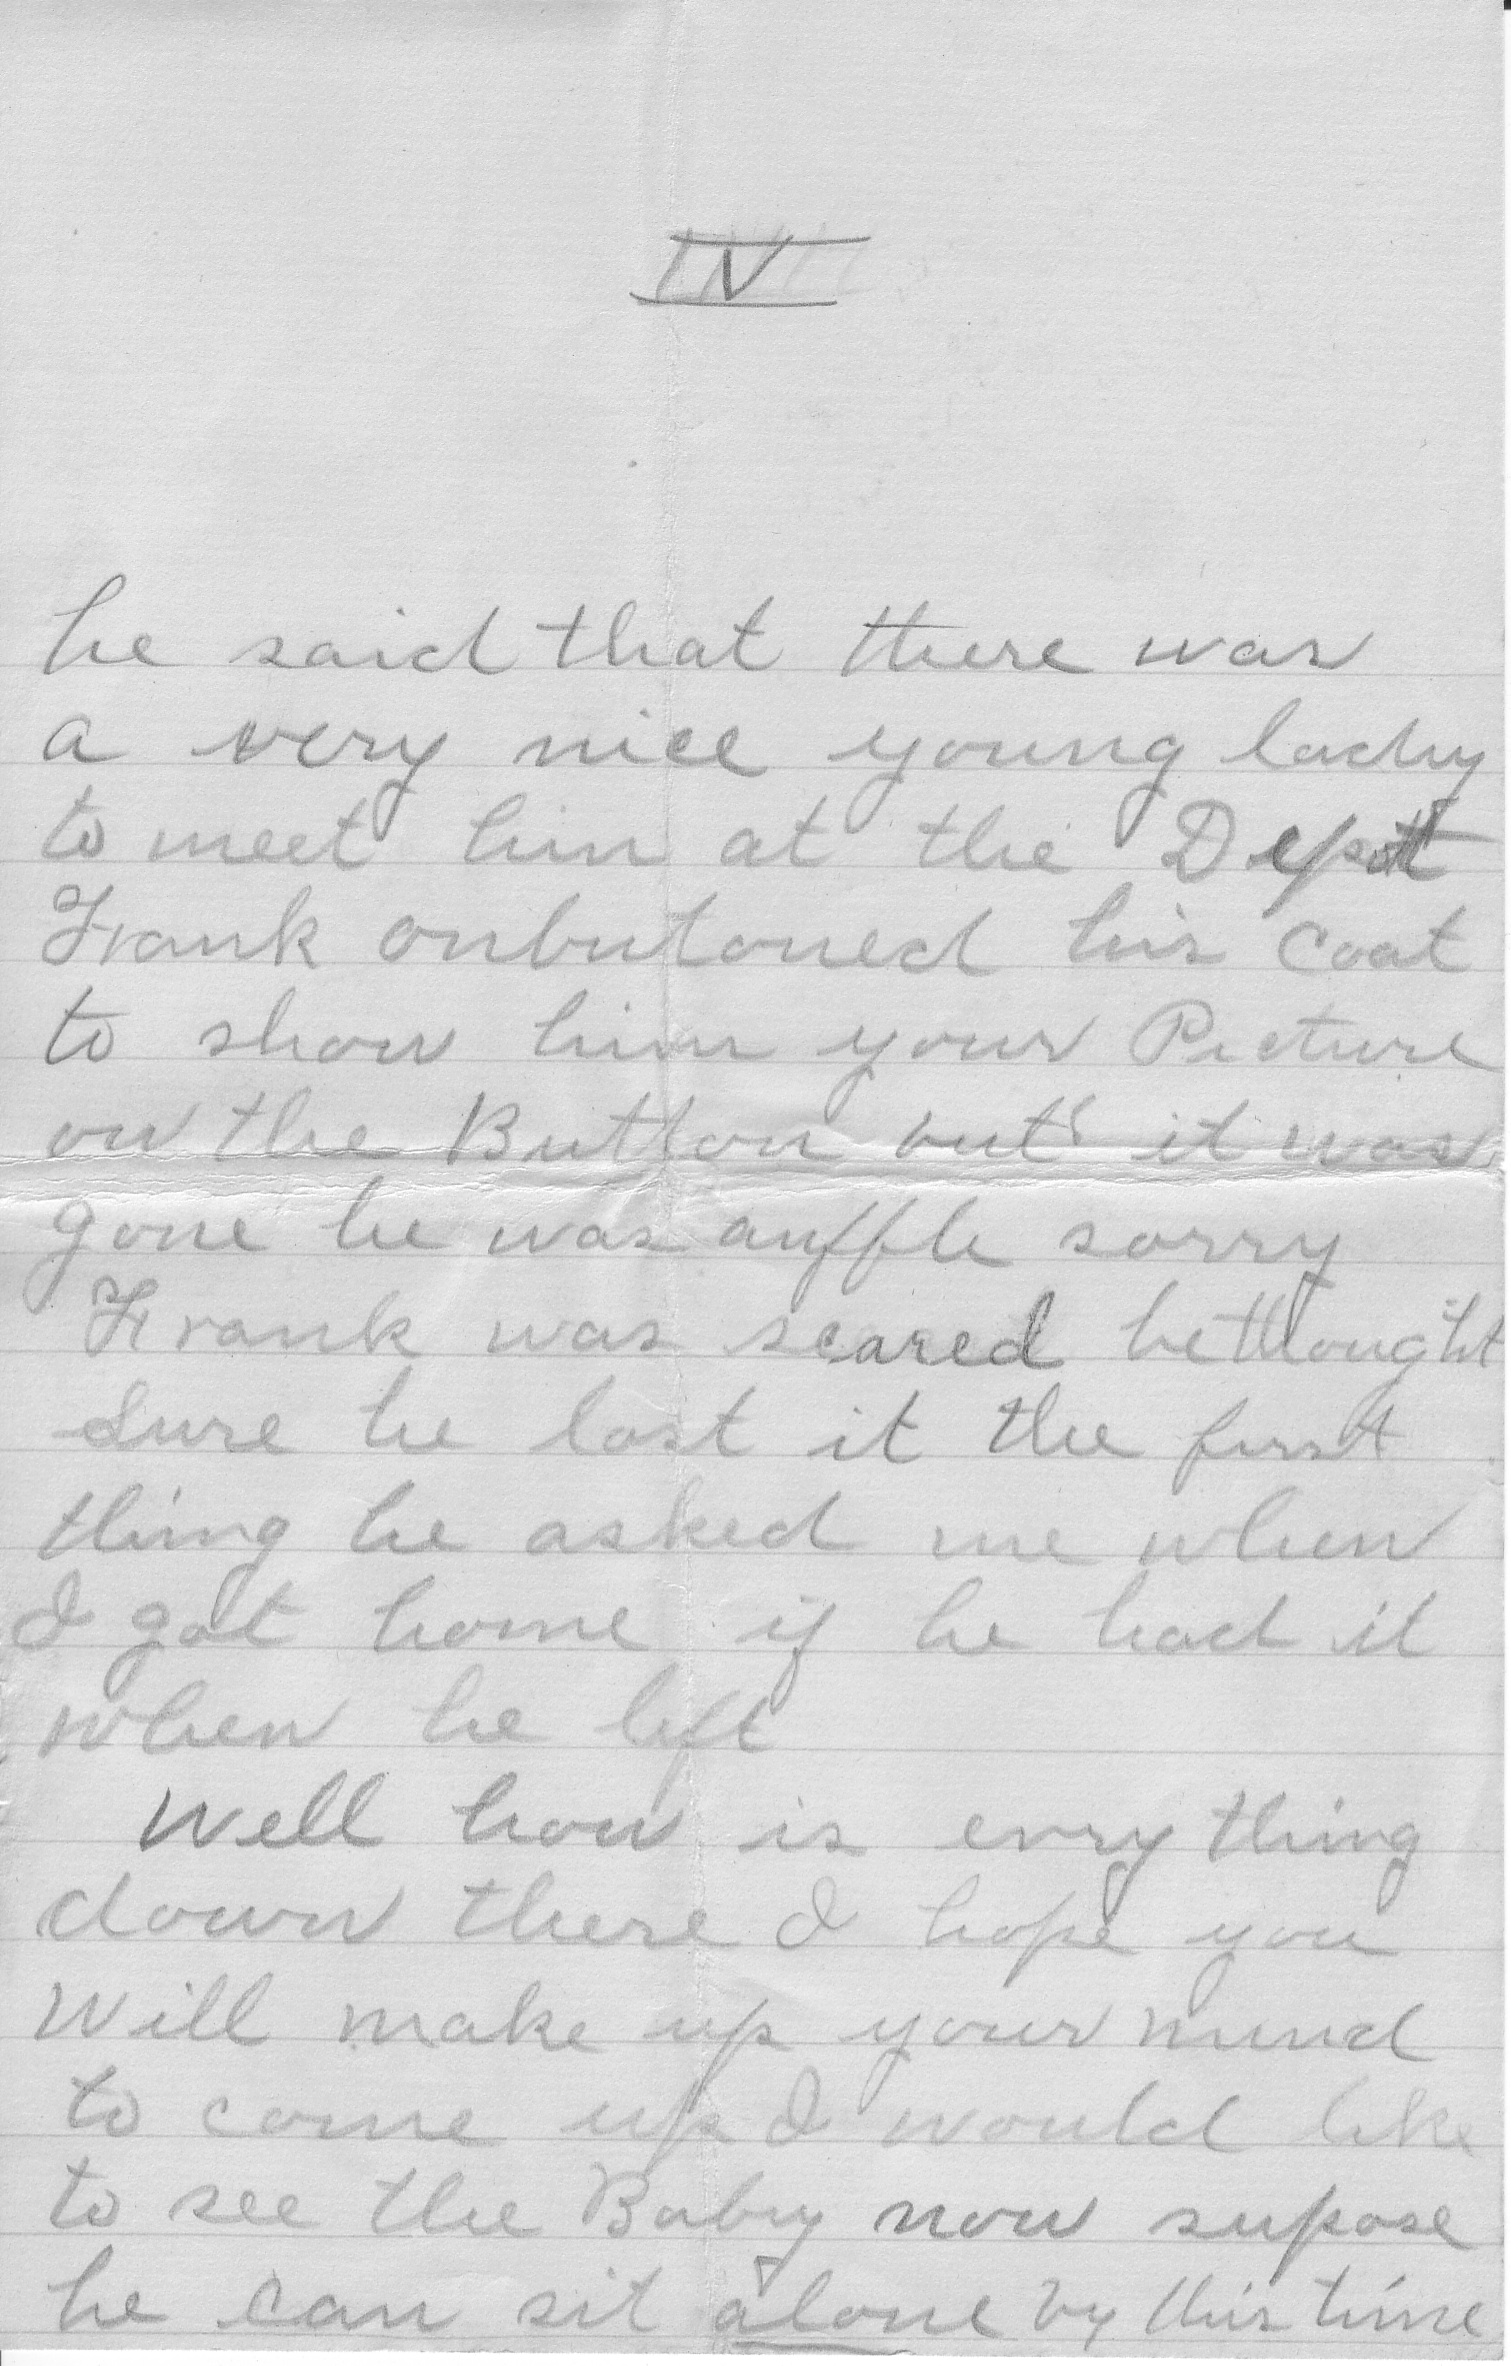 IV
he said that there was
a very nice young lady
to meet him at the Depott
Frank onbutoned his coat
to show him your Picture
on the Button but it was
gone he was auffle sorry
Frank was scared he thought
Sure he lost it the first
thing he asked me when
I got home if he had it
when he left
Well how is evry thing
down there I hope you
Will make up your mind
to come up I would like
to see the Baby now supose
he can sit alone by this time